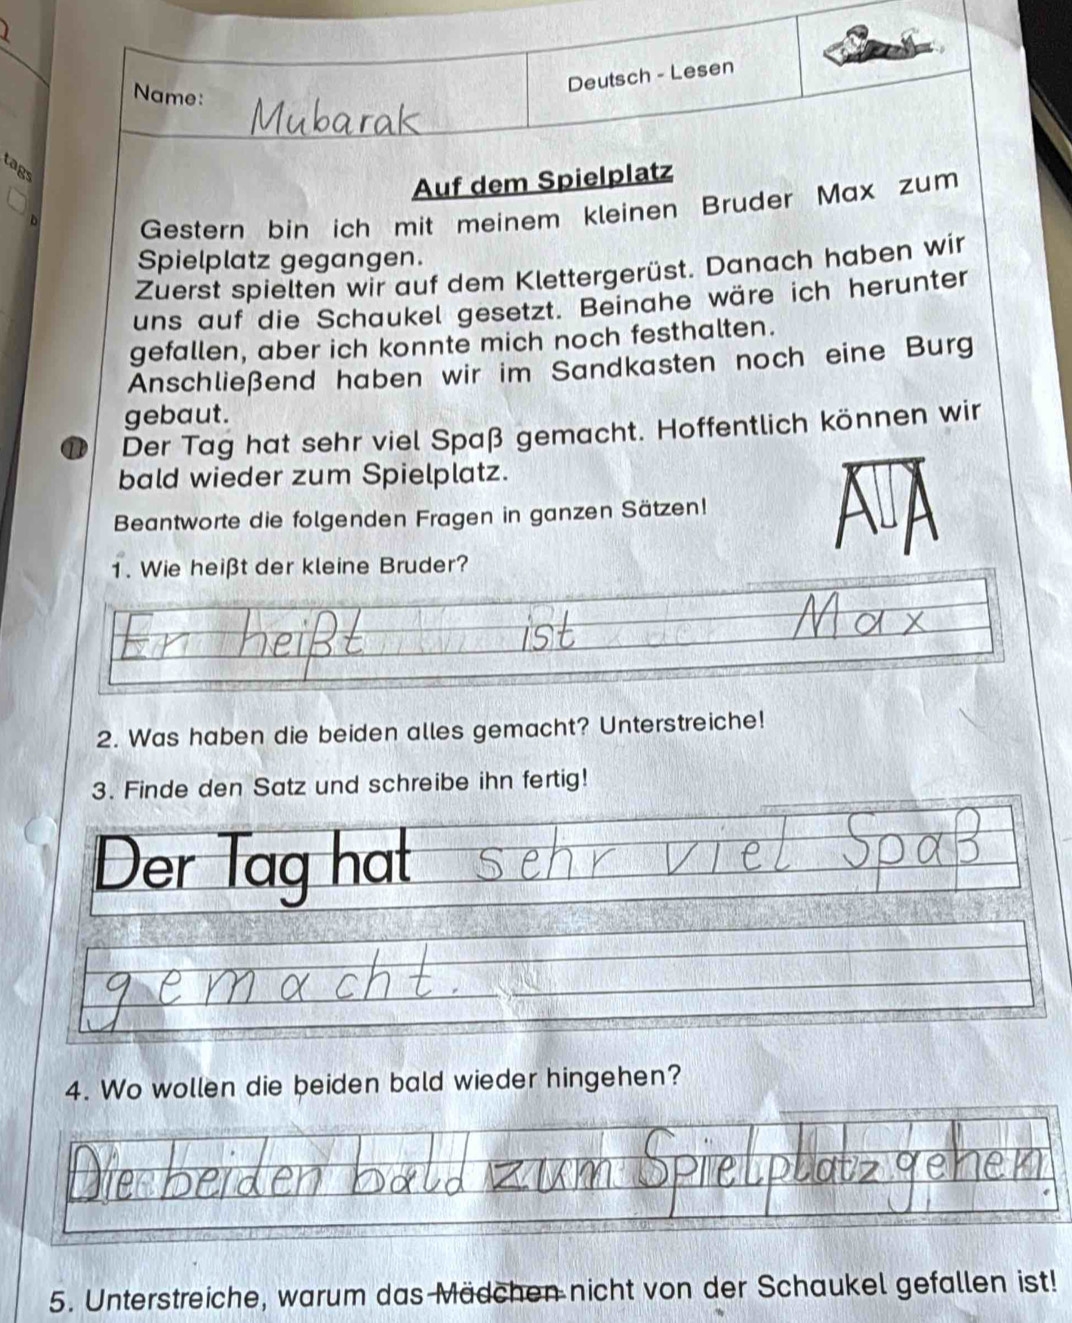 Name: Mubarak
Deutsch - Lesen
tags
Auf dem Spielplatz
Gestern bin ich mit meinem kleinen Bruder Max zum
Spielplatz gegangen.
Zuerst spielten wir auf dem Klettergerüst. Danach haben wir
uns auf die Schaukel gesetzt. Beinahe wäre ich herunter
gefallen, aber ich konnte mich noch festhalten.
Anschließend haben wir im Sandkasten noch eine Burg
gebaut.
Der Tag hat sehr viel Spaß gemacht. Hoffentlich können wir
bald wieder zum Spielplatz.
Beantworte die folgenden Fragen in ganzen Sätzen!
1. Wie heißt der kleine Bruder?
Er heißt ist Max
2. Was haben die beiden alles gemacht? Unterstreiche!
3. Finde den Satz und schreibe ihn fertig!
Der Tag hat sehr viel Spaß
gemacht.
4. Wo wollen die beiden bald wieder hingehen?
Die beiden bald zum Spielplatz gehen.
5. Unterstreiche, warum das Mädchen nicht von der Schaukel gefallen ist!